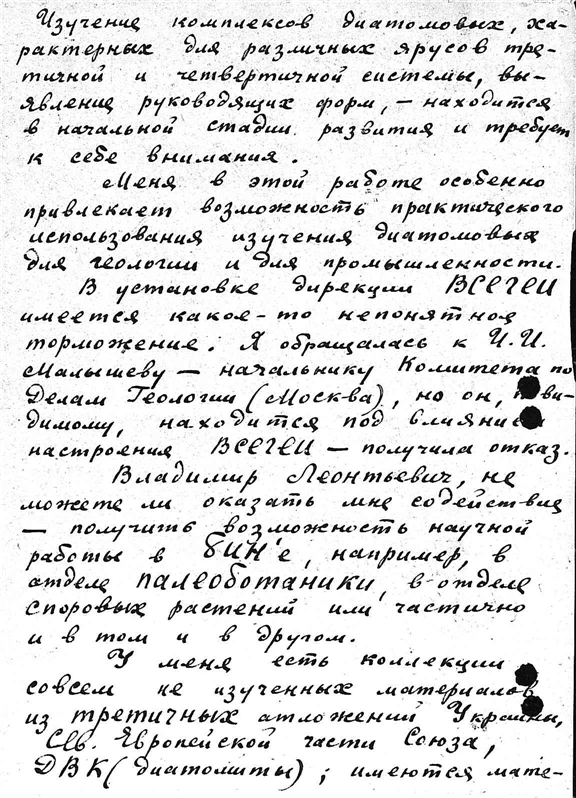 Изучение комплексов диатомовых, ха-
рактерных для различных ярусов тре-
тичной и четвертичной системы, вы-
явление руководящих форм, — находится
в начальной стадии развития и требует
к себе внимания.
Меня в этой работе особенно
привлекает возможность практического
использования изучения диатомовых
для геологии и для промышленности.
В установке дирекции ВСЕГЕИ
имеется какое-то непонятное
торможение. Я обращалась к И.И.
Малышеву — начальнику Комитета по
Делам Геологии (Москва), но он, пови-
димому, находится под влиянием
настроения ВСЕГЕИ — получила отказ.
Владимир Леонтьевич, не
можете ли оказать мне содействие
— получить возможность научной
работы в БИН'е, например, в
отделе палеоботаники, в отделе
споровых растений или частично
и в том и в другом.
У меня есть коллекции
совсем не изученных материалов
из третичных отложений Украины,
Св. Европейской части Союза,
ДВК (диатомиты); имеются мате-